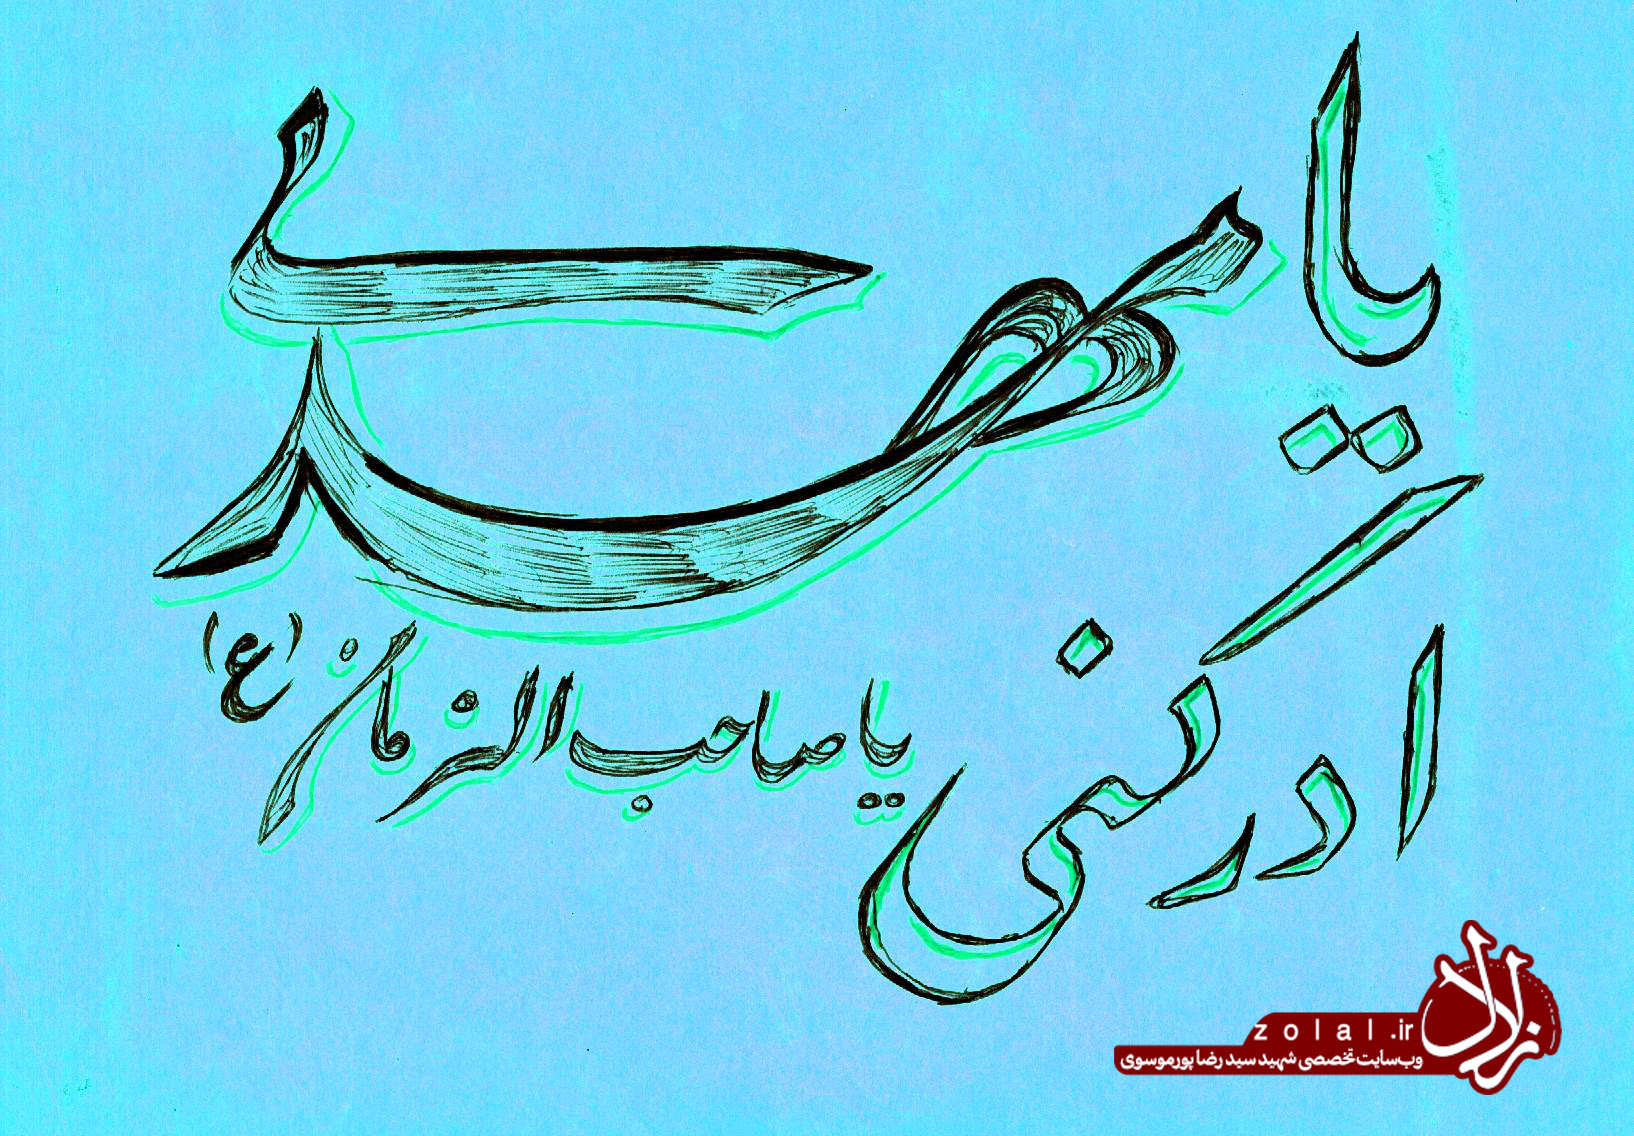 یا مهدی
ادرکنی
یا صاحب الزمان (ع)
زلال
zolal.ir
وب‌سایت تخصصی شهید سید رضا پورموسوی